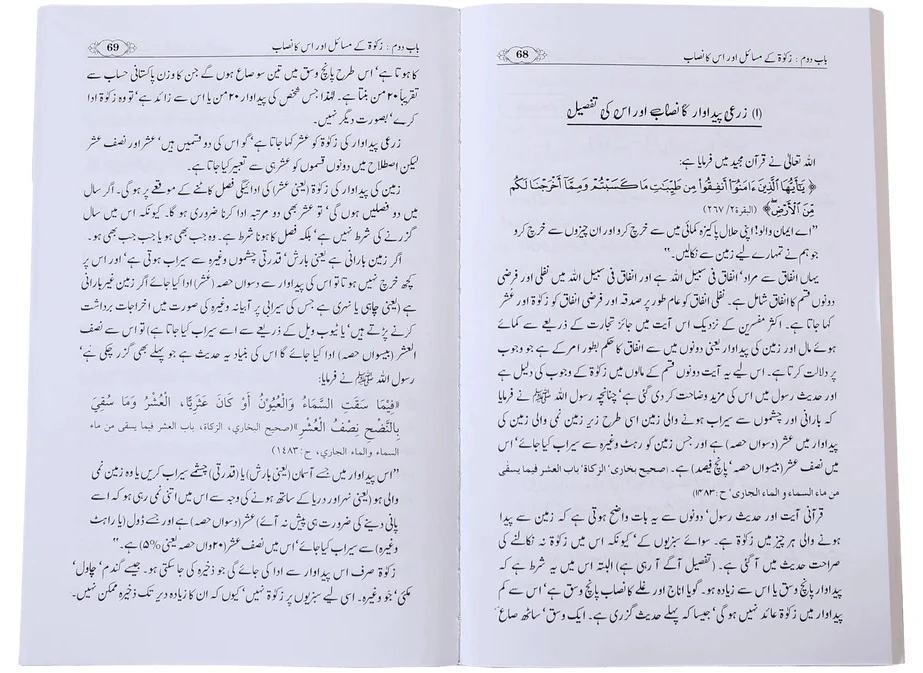 باب دوم : زکوٰۃ کے مسائل اور اس کا نصاب
68
(۱) زرعی پیداوار کا نصاب اور اس کی تفصیل
اللہ تعالیٰ نے قرآن مجید میں فرمایا ہے:
﴿ يَٰٓأَيُّهَا ٱلَّذِينَ ءَامَنُوٓا۟ أَنفِقُوا۟ مِن طَيِّبَٰتِ مَا كَسَبْتُمْ وَمِمَّآ أَخْرَجْنَا لَكُم
مِّنَ ٱلْأَرْضِ ۖ﴾ (البقرة۲/ ۲۶۷)
”اے ایمان والو! اپنی حلال پاکیزہ کمائی میں سے خرچ کرو اور ان چیزوں سے خرچ کرو
جو ہم نے تمہارے لیے زمین سے نکالیں۔“
یہاں انفاق سے مراد‘ انفاق فی سبیل اللہ ہے اور انفاق فی سبیل اللہ میں نفلی اور فرضی
دونوں قسم کا انفاق شامل ہے۔ نفلی انفاق کو عام طور پر صدقہ اور فرضی انفاق کو زکوٰۃ اور عشر
کہا جاتا ہے۔ اکثر مفسرین کے نزدیک اس آیت میں جائز تجارت کے ذریعے سے کمائے
ہوئے مال اور زمین کی پیداوار یعنی دونوں میں سے انفاق کا حکم بطور امر کے ہے جو وجوب
پر دلالت کرتا ہے۔ اس لیے یہ آیت دونوں قسم کے مالوں میں زکوٰۃ کے وجوب کی دلیل ہے
اور حدیث رسول میں اس کی مزید وضاحت کر دی گئی ہے‘ چنانچہ رسول اللہ ﷺ نے فرمایا
کہ بارانی اور چشموں سے سیراب ہونے والی زمین اسی طرح زیر زمین نمی والی زمین کی
پیداوار میں عشر (دسواں حصہ) ہے اور جس زمین کو رہٹ وغیرہ سے سیراب کیا جائے‘ اس
میں نصف عشر (بیسواں حصہ‘ پانچ فیصد) ہے۔ (صحیح بخاری‘ الزکاۃ‘ باب العشر فیما یسقی
من ماء السماء و الماء الجاری‘ ح : ۱۴۸۳)
قرآنی آیت اور حدیث رسول‘ دونوں سے یہ بات واضح ہوتی ہے کہ زمین سے پیدا
ہونے والی ہر چیز میں زکوٰۃ ہے۔ سوائے سبزیوں کے‘ کیونکہ اس میں زکوٰۃ نہ نکالنے کی
صراحت حدیث میں آ گئی ہے۔ (تفصیل آگے آ رہی ہے) البتہ اس میں یہ شرط ہے کہ
پیداوار پانچ وسق یا اس سے زیادہ ہو۔ گویا اناج اور غلے کا نصاب پانچ وسق ہے‘ اس سے کم
پیداوار میں زکوٰۃ عائد نہیں ہو گی‘ جیسا کہ پہلے حدیث گزری ہے۔ ایک وسق‘ ساٹھ صاع
باب دوم : زکوٰۃ کے مسائل اور اس کا نصاب
69
کا ہوتا ہے‘ اس طرح پانچ وسق میں تین سو صاع ہوں گے جن کا وزن پاکستانی حساب سے
تقریباً ۲۰ من بنتا ہے۔ لہٰذا جس شخص کی پیداوار ۲۰ من یا اس سے زائد ہے‘ تو وہ زکوٰۃ ادا
کرے‘ بصورت دیگر نہیں۔
زرعی پیداوار کی زکوٰۃ کو عشر کہا جاتا ہے‘ گو اس کی دو قسمیں ہیں‘ عشر اور نصف عشر
لیکن اصطلاح میں دونوں قسموں کو عشر ہی سے تعبیر کیا جاتا ہے۔
زمین کی پیداوار کی زکوٰۃ (یعنی عشر) کی ادائیگی فصل کاٹنے کے موقعے پر ہو گی۔ اگر سال
میں دو فصلیں ہوں گی‘ تو عشر بھی دو مرتبہ ادا کرنا ضروری ہو گا۔ کیونکہ اس میں سال
گزرنے کی شرط نہیں ہے‘ بلکہ فصل کا ہونا شرط ہے۔ وہ جب بھی ہو یا جب جب بھی ہو۔
اگر زمین بارانی ہے یعنی بارش‘ قدرتی چشموں وغیرہ سے سیراب ہوتی ہے‘ اور اس پر
کچھ خرچ نہیں ہوتا تو اس کی پیداوار سے دسواں حصہ (عُشر) ادا کیا جائے اگر زمین غیر بارانی
ہے (یعنی چاہی یا نہری ہے جس کی سیرابی پر آبیانہ وغیرہ کی صورت میں اخراجات برداشت
کرنے پڑتے ہیں‘ یا ٹیوب ویل کے ذریعے سے اسے سیراب کیا جاتا ہے) تو اس سے نصف
العشر (بیسواں حصہ) ادا کیا جائے گا اس کی بنیاد یہ حدیث ہے جو پہلے بھی گزر چکی ہے‘
رسول اللہ ﷺ نے فرمایا:
«فِيمَا سَقَتِ السَّمَاءُ وَالْعُيُونُ أَوْ كَانَ عَثَرِيًّا، الْعُشْرُ وَمَا سُقِيَ
بِالنَّضْحِ نِصْفُ الْعُشْرِ»(صحیح البخاري، الزكاة، باب العشر فيما يسقى من ماء
السماء والماء الجاري، ح: ۱۴۸۳)
”اس پیداوار میں جسے آسمان (یعنی بارش) یا (قدرتی) چشمے سیراب کریں یا وہ زمین نمی
والی ہو (یعنی نہر اور دریا کے ساتھ ہونے کی وجہ سے اس میں اتنی نمی رہتی ہو کہ اسے
پانی دینے کی ضرورت ہی پیش نہ آئے) عشر (دسواں حصہ) ہے اور جسے ڈول (یا راہٹ
وغیرہ) سے سیراب کیا جائے‘ اس میں نصف عشر (۲۰واں حصہ یعنی ۵%) ہے۔“
زکوٰۃ صرف اس پیداوار سے ادا کی جائے گی جو ذخیرہ کی جا سکتی ہو۔ جیسے گندم‘ چاول‘
مکئی‘ جَو وغیرہ۔ اسی لیے سبزیوں پر زکوٰۃ نہیں‘ کیوں کہ ان کا زیادہ دیر تک ذخیرہ ممکن نہیں۔